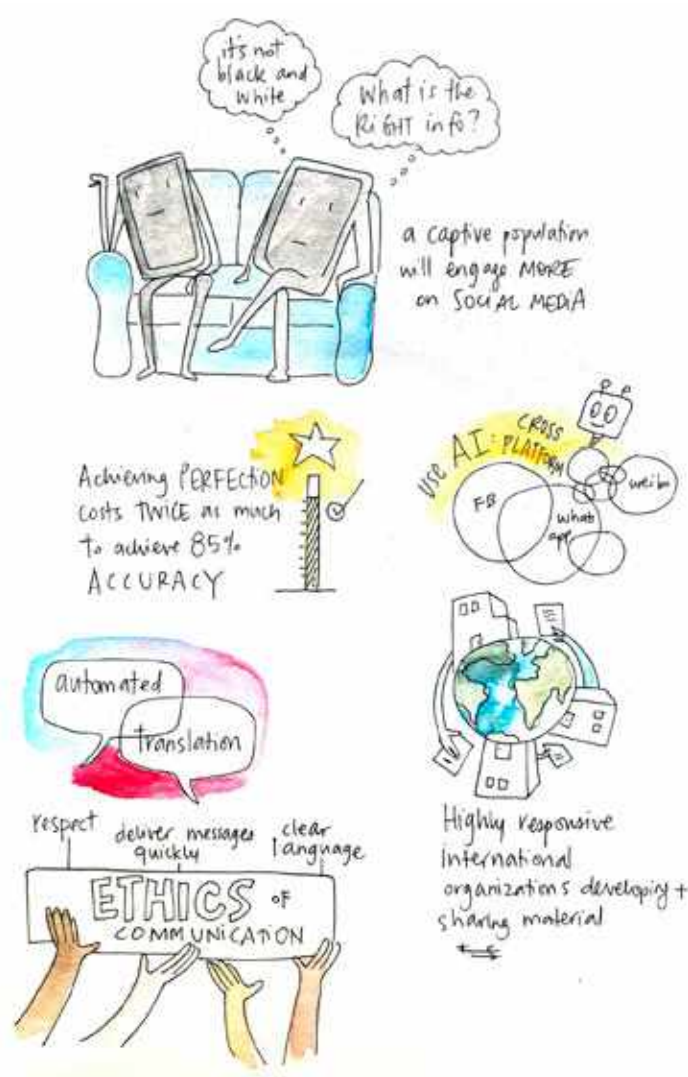 it's not
black and
white
What is the
RiGHT info?
a captive population
will engage MORE
on SOCIAL MEDIA
Achieving PERFECTION
costs TWICE as much
to achieve 85%
ACCURACY
use AI: CROSS
PLATFORM
FB
what
app
weibo
automated
translation
respect
deliver messages
quickly
clear
language
ETHICS OF
COMMUNICATION
Highly responsive
international
organizations developing +
sharing material